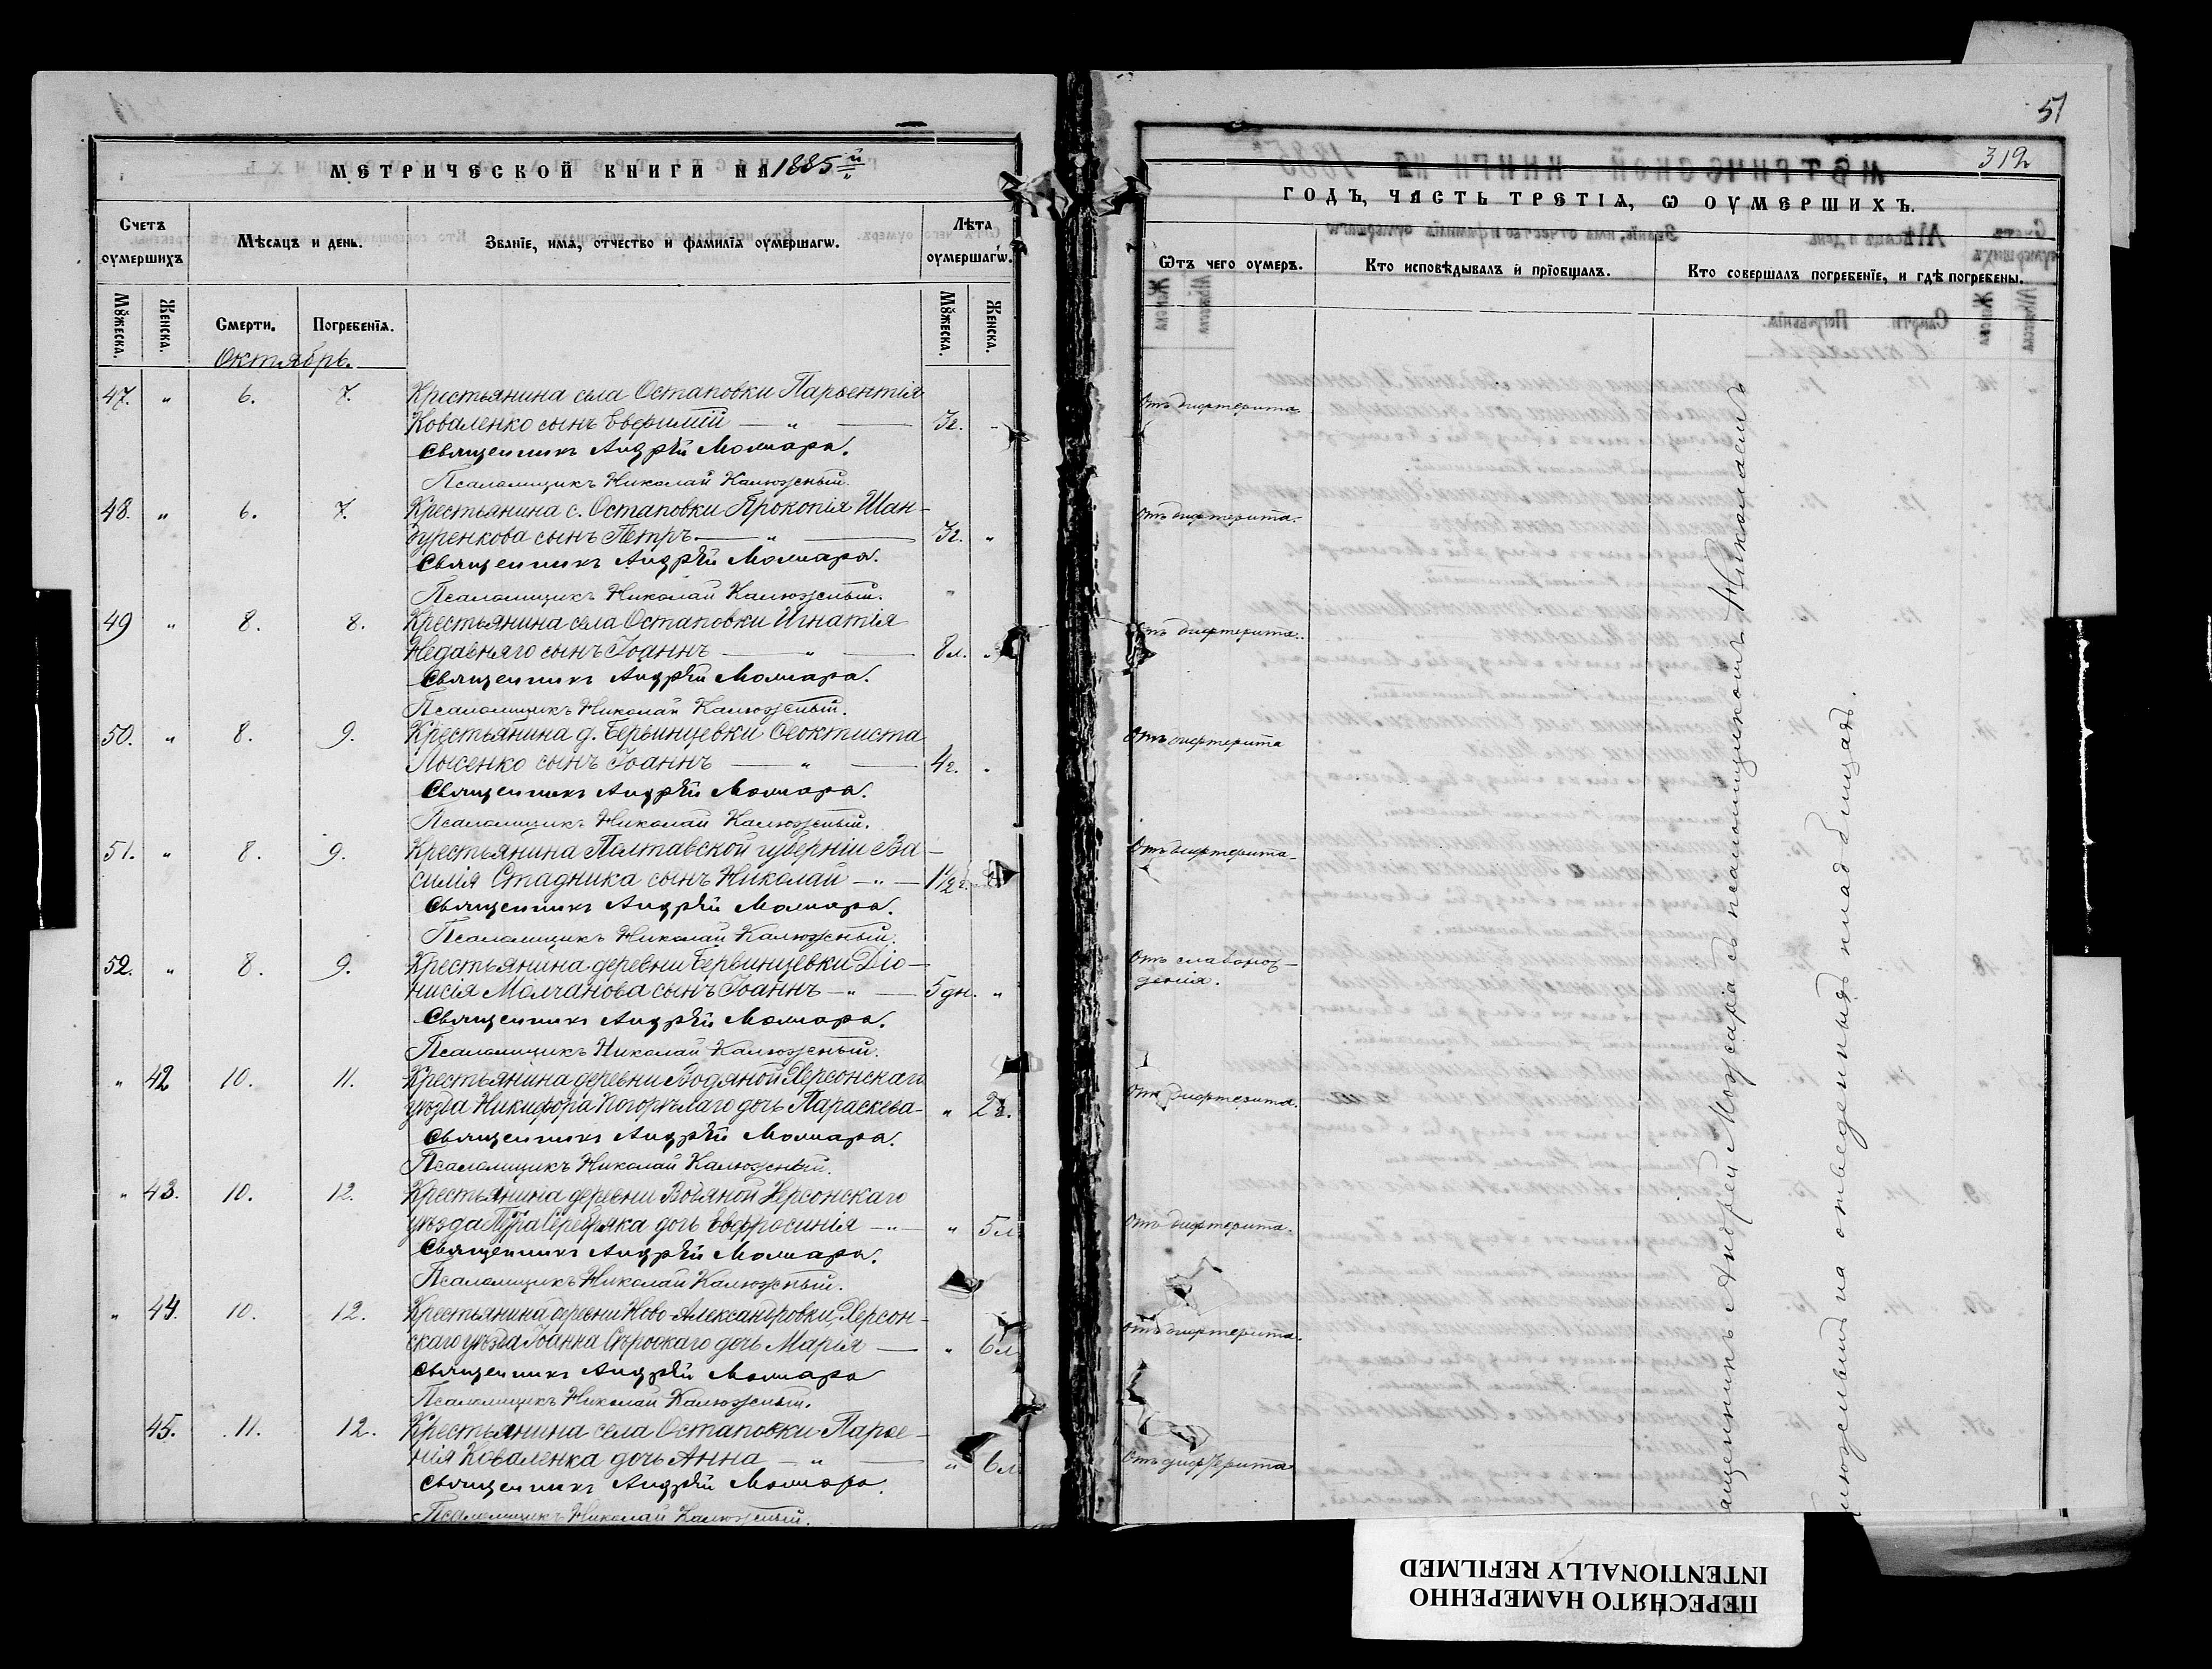 МЕТРИЧЕСКОЙ КНИГИ НА 1885й
Счетъ оумершихъ
Мѣсяцъ и день.
Званіе, имя, отчество и фамилія оумершагѡ.
Лѣта оумершагѡ.
Мȣжеска.
Женска.
Смерти.
Погребенія.
Мȣжеска.
Женска.
Октябрь.
47. " 6. 7. Крестьянина села Остаповки Парѳентія
Коваленко сынъ Евфимій — " — 3г. "
Священникъ Андрѣй Можара.
Псаломщикъ Николай Калюжный.
48. " 6. 7. Крестьянина с. Остаповки Прокопія Шан-
дуренкова сынъ Петръ — " — 3г. "
Священникъ Андрѣй Можара.
Псаломщикъ Николай Калюжный.
49 " 8. 8. Крестьянина села Остаповки Игнатія
Недавняго сынъ Іоаннъ — " — 8л. "
Священникъ Андрѣй Можара.
Псаломщикъ Николай Калюжный.
50. " 8. 9. Крестьянина д. Бервинцевки Ѳеоктиста
Лысенко сынъ Іоаннъ — " — 4г. "
Священникъ Андрѣй Можара.
Псаломщикъ Николай Калюжный.
51. " 8. 9. Крестьянина Полтавской губерніи Ва-
силія Стадника сынъ Николай — " — 1½ г.
Священникъ Андрѣй Можара.
Псаломщикъ Николай Калюжный.
52. " 8. 9. Крестьянина деревни Бервинцевки Діо-
нисія Молчанова сынъ Іоаннъ — " — 5 дн. "
Священникъ Андрѣй Можара.
Псаломщикъ Николай Калюжный.
" 42 10. 11. Крестьянина деревни Водяной Херсонскаго
уѣзда Никифора Погорѣлаго дочь Параскева - " 2г.
Священникъ Андрѣй Можара.
Псаломщикъ Николай Калюжный.
" 43. 10. 12. Крестьянина деревни Водяной Херсонскаго
уѣзда Петра Серебряка дочь Евфросинія — " — " 5л.
Священникъ Андрѣй Можара.
Псаломщикъ Николай Калюжный.
" 44. 10. 12. Крестьянина деревни Ново-Александровки, Херсон-
скаго уѣзда Іоанна дочь Марія — " 6л.
Священникъ Андрѣй Можара
Псаломщикъ Николай Калюжный.
45. 11. 12. Крестьянина села Остаповки Парѳе-
нія Коваленка дочь Анна — " — " 6л.
Священникъ Андрѣй Можара.
Псаломщикъ Николай Калюжный.
51
319
ГОДЪ, ЧАСТЬ ТРЕТІѦ, Ѡ ОУМЕРШИХЪ.
Ѿтъ чего оумеръ.
Кто исповѣдывалъ и пріобщалъ.
Кто совершалъ погребеніе, и гдѣ погребены.
Отъ дифтерита.
Отъ дифтерита.
Отъ дифтерита.
Отъ дифтерита
Отъ дифтерита.
Отъ слаборож-
денія.
Отъ дифтерита.
Отъ дифтерита.
Отъ дифтерита.
Отъ дифтерита
ащенникъ Андрей Можара съ псаломщикомъ Николаемъ
люжнымъ на отведенныхъ кладбищахъ.
ПЕРЕСНЯТО НАМЕРЕННО
INTENTIONALLY REFILMED